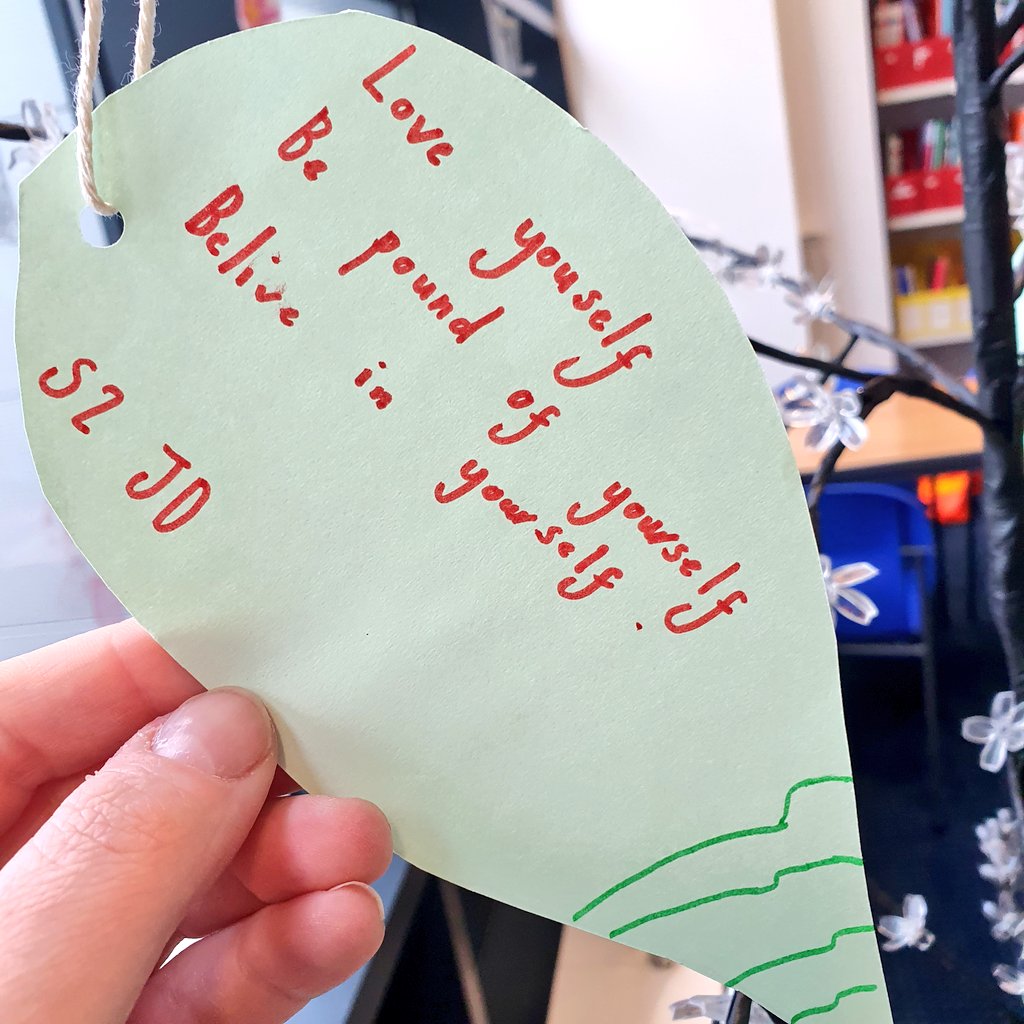 Love youself
Be pound of yourself
Belive in yourself.
S2 JD